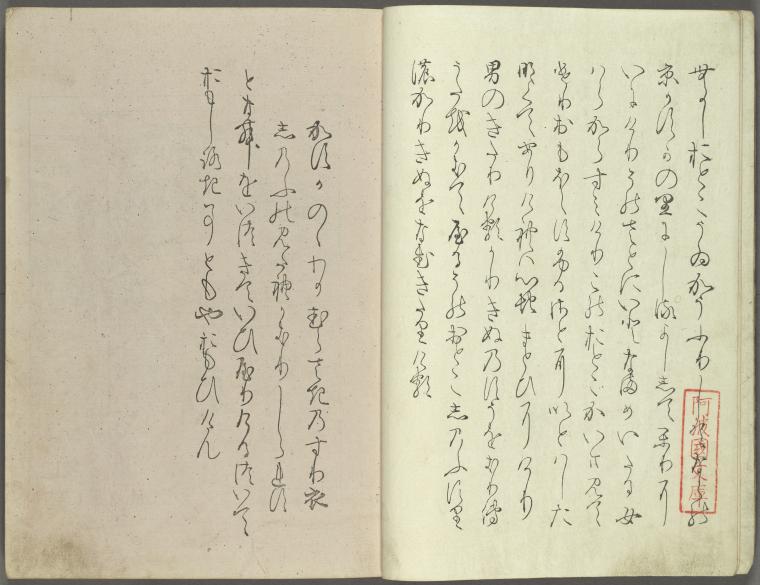 むかしおとこうゐかうふりしてならの
京かすかの里にしるよししてかりに
いにけりそのさとにいとなまめいたる女
はらからすみけりこのおとこかいま見て
けりおもほえすふるさとにいとはした
なくてありけれは心地まとひにけり
男のきたりけるかりきぬのすそをきりて
うたをかきてやるそのおとこしのふすり
のかりきぬをなむきたりける
阿波國文庫
かすかのゝわかむらさきのすり衣
しのふのみたれかきりしられす
となむをいつきていひやりけるついて
おもしろき事ともやおもひけん